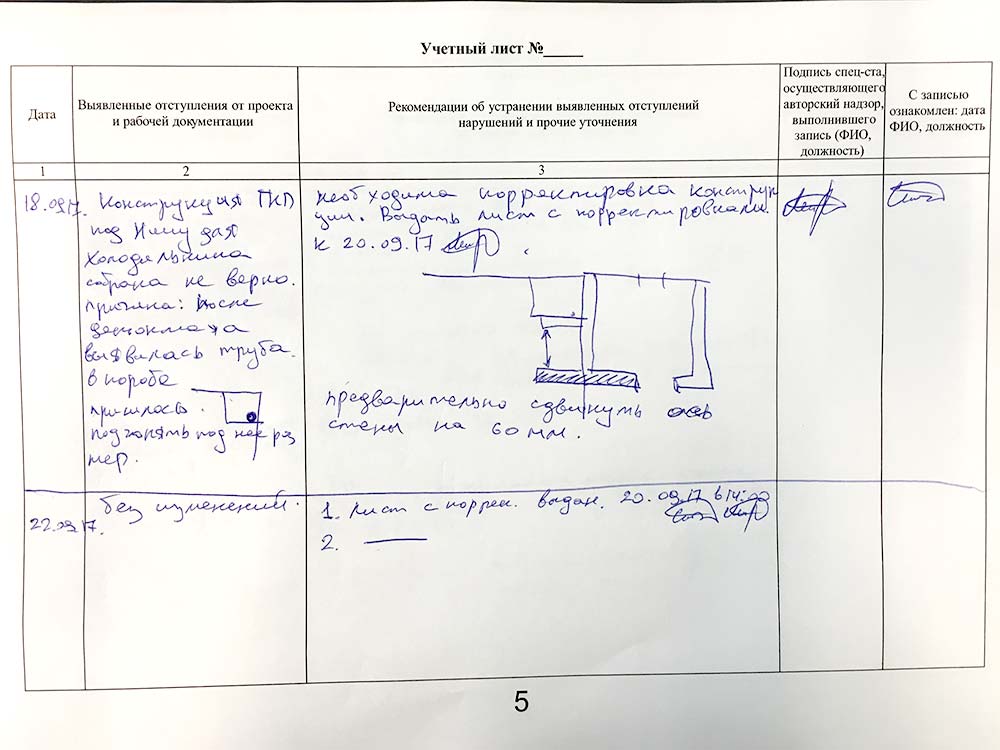 Учетный лист №____
Дата
Выявленные отступления от проекта
и рабочей документации
Рекомендации об устранении выявленных отступлений
нарушений и прочие уточнения
Подпись спец-ста,
осуществляющего
авторский надзор,
выполнившего
запись (ФИО,
должность)
С записью
ознакомлен: дата
ФИО, должность
1
2
3
18.09.17.
Конструкция ГКЛ
под нишу для
холодильника
собрана не верно.
причина: после
демонтажа
выявилась труба.
в коробе
пришлось.
подгонять под нее раз
мер.
необходима корректировка конструк
ции. Выдать лист с корректировками.
к 20.09.17
предварительно сдвинуть ось
стены на 60 мм.
22.09.17.
без изменений.
1. Лист с коррек. выдан. 20.09.17 в 14:00
2. —
5